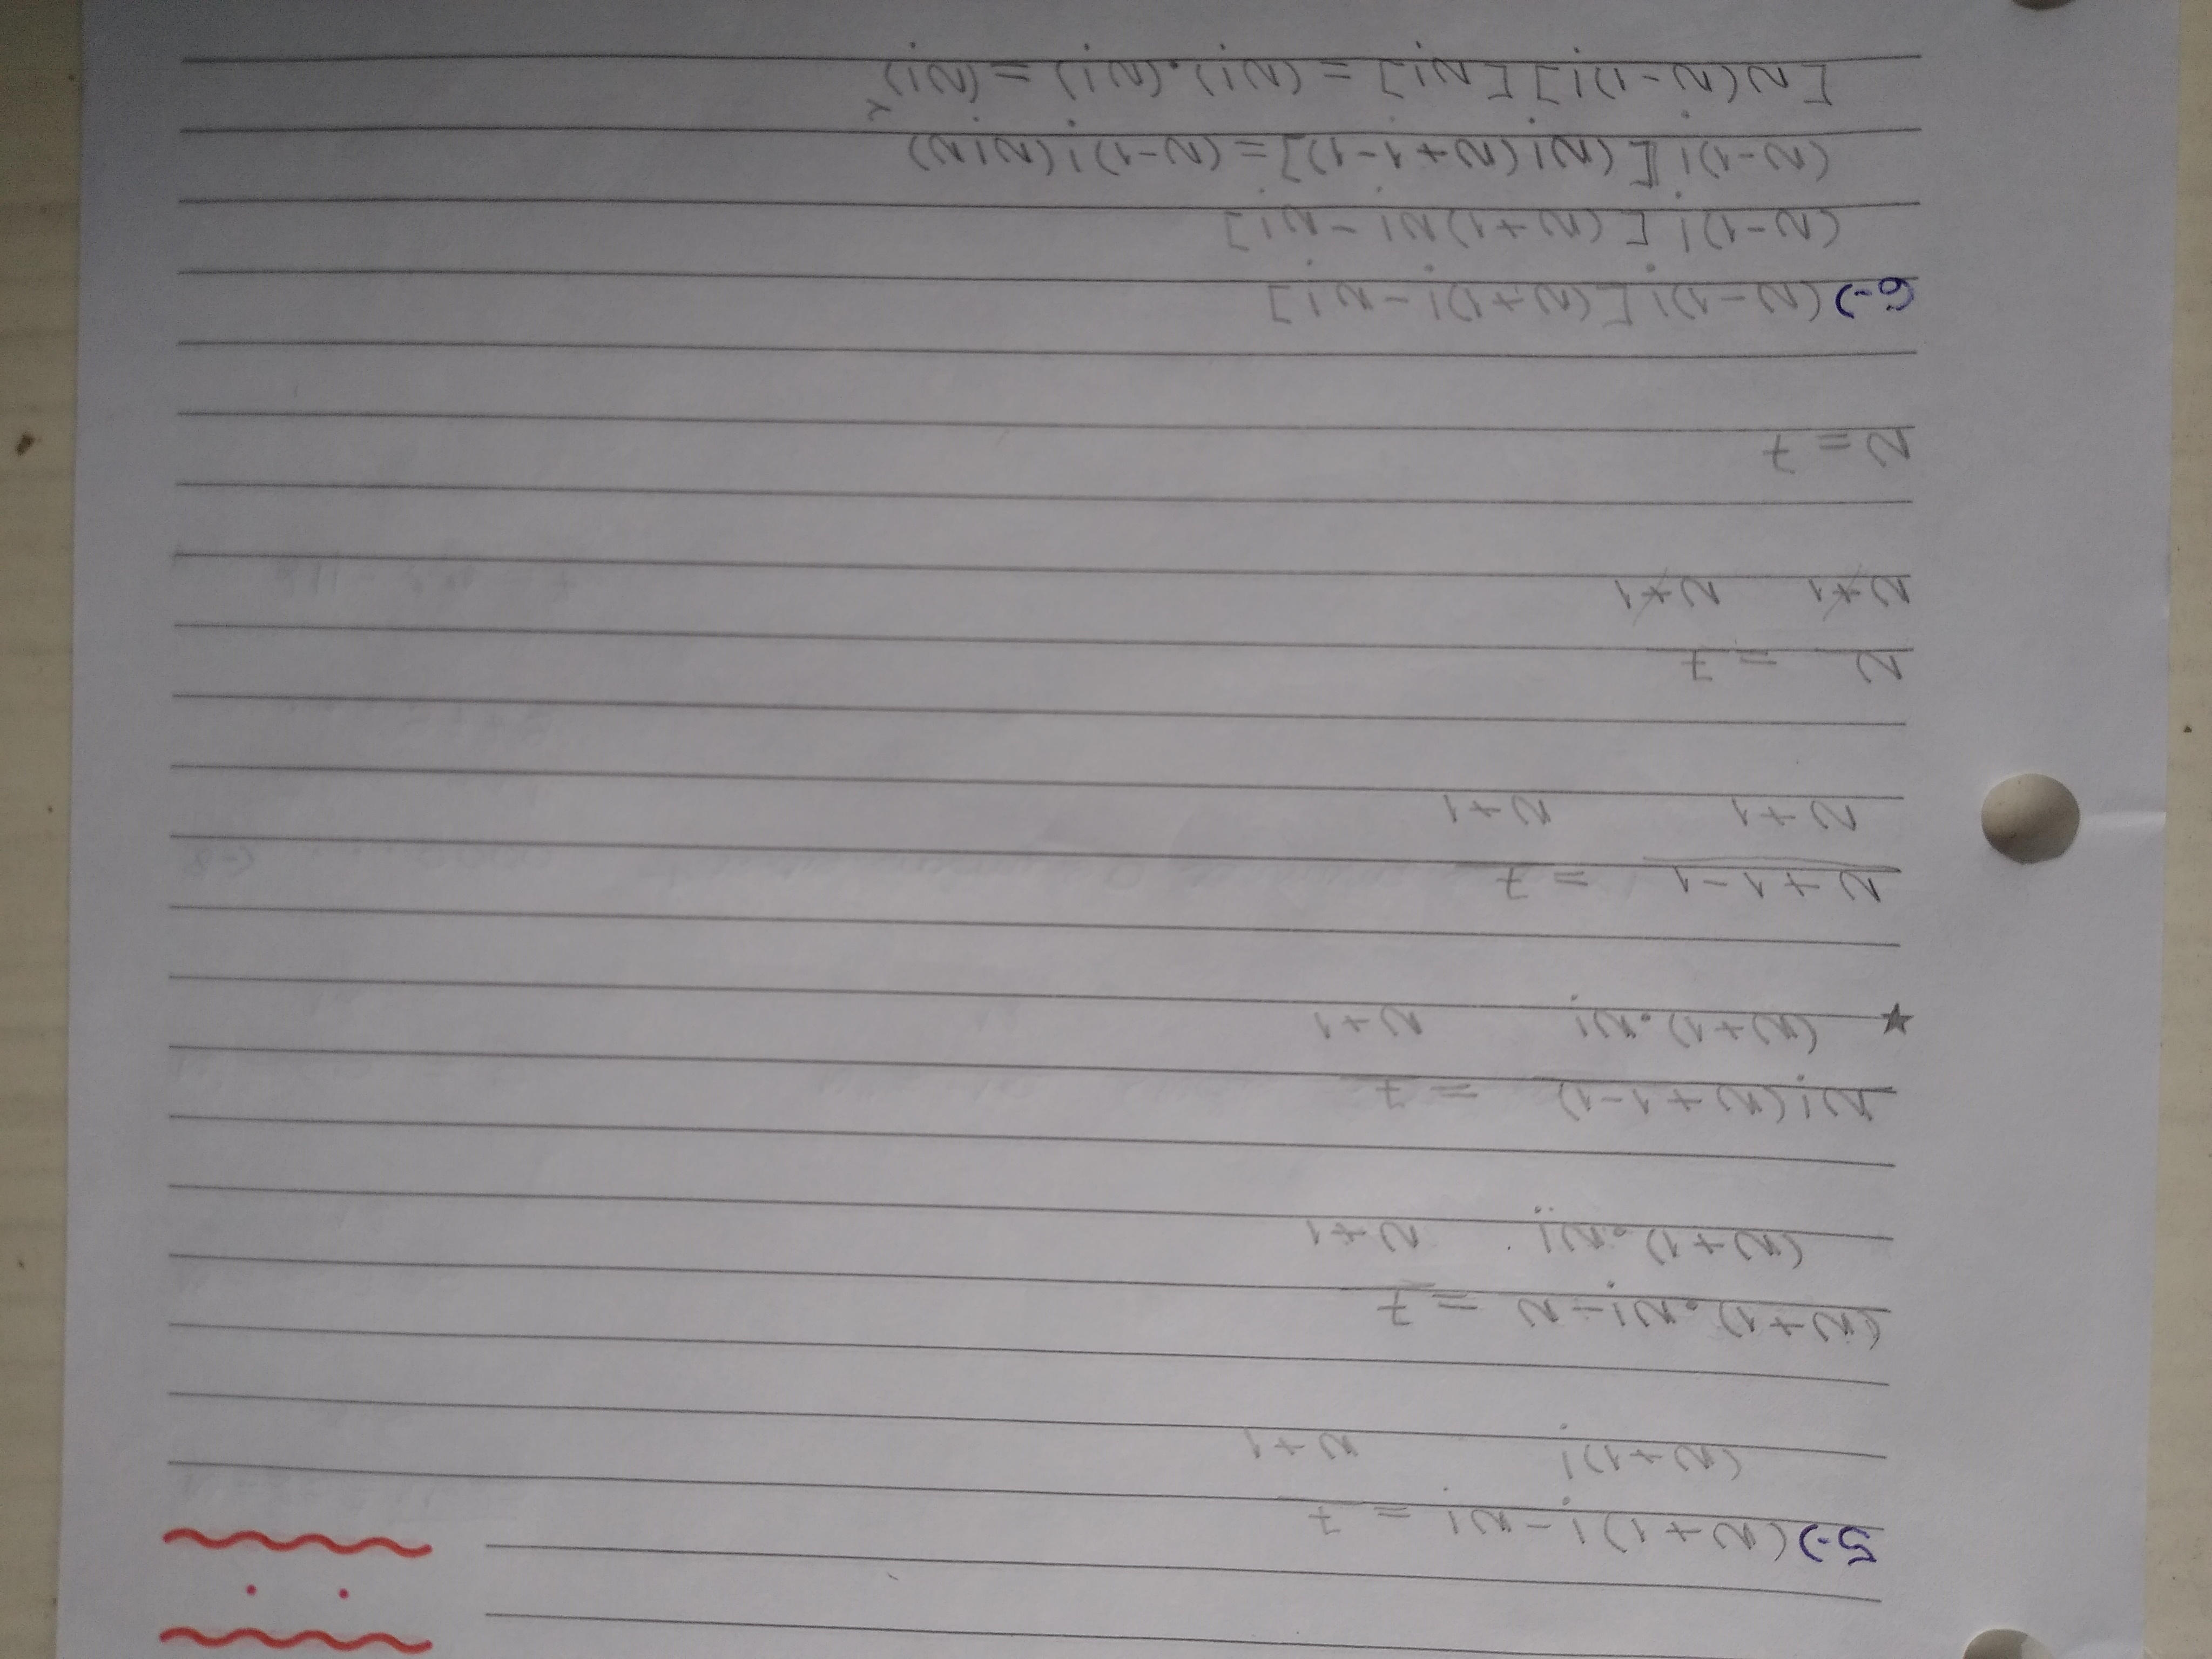 5-) (N+1)! - N! = 7
(N+1)! N+1
(N+1).N! - N = 7
(N+1).N! N+1
N!(N+1-1) = 7
(N+1).N! N+1
N+1-1 = 7
N+1 N+1
N = 7
N+1 N+1
N = 7
6-) (N-1)! [(N+1)! - N!]
(N-1)! [(N+1)N! - N!]
(N-1)! [(N!(N+1-1)] = (N-1)!(N!N)
[N(N-1)!] [N!] = (N!).(N!) = (N!)²